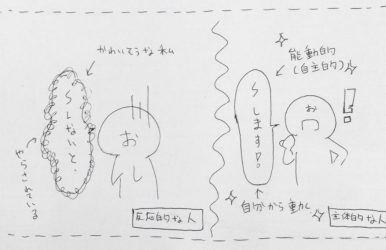 かわいそうな私
〜しないと、
やらされている
お
し
反応的な人
能動的
(自主的)
〜します!
お
自分から動く
主体的な人